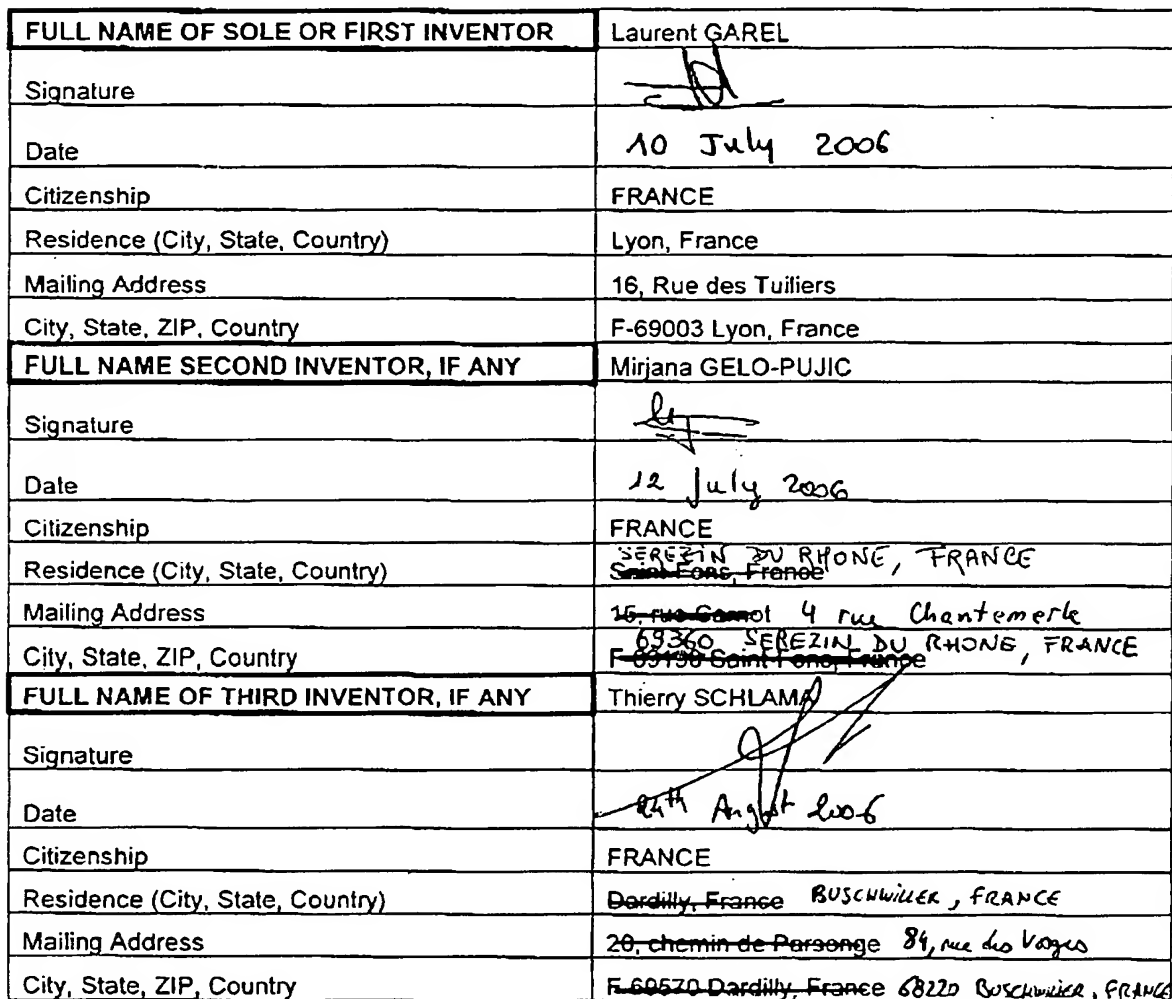 FULL NAME OF SOLE OR FIRST INVENTOR Laurent GAREL
Signature
Date 10 July 2006
Citizenship FRANCE
Residence (City, State, Country) Lyon, France
Mailing Address 16, Rue des Tuiliers
City, State, ZIP, Country F-69003 Lyon, France
FULL NAME SECOND INVENTOR, IF ANY Mirjana GELO-PUJIC
Signature
Date 12 July 2006
Citizenship FRANCE
SEREZIN DU RHONE, FRANCE
Residence (City, State, Country) Saint Fons, France
Mailing Address 16, rue Carnot 4 rue Chantemerle
69360 SEREZIN DU RHONE, FRANCE
City, State, ZIP, Country F-69190 Saint Fons, France
FULL NAME OF THIRD INVENTOR, IF ANY Thierry SCHLAMA
Signature
Date 24th August 2006
Citizenship FRANCE
Residence (City, State, Country) Dardilly, France BUSCHWILLER, FRANCE
Mailing Address 20, chemin de Parsonge 84, rue des Vosges
City, State, ZIP, Country F-69570 Dardilly, France 68220 BUSCHWILLER, FRANCE